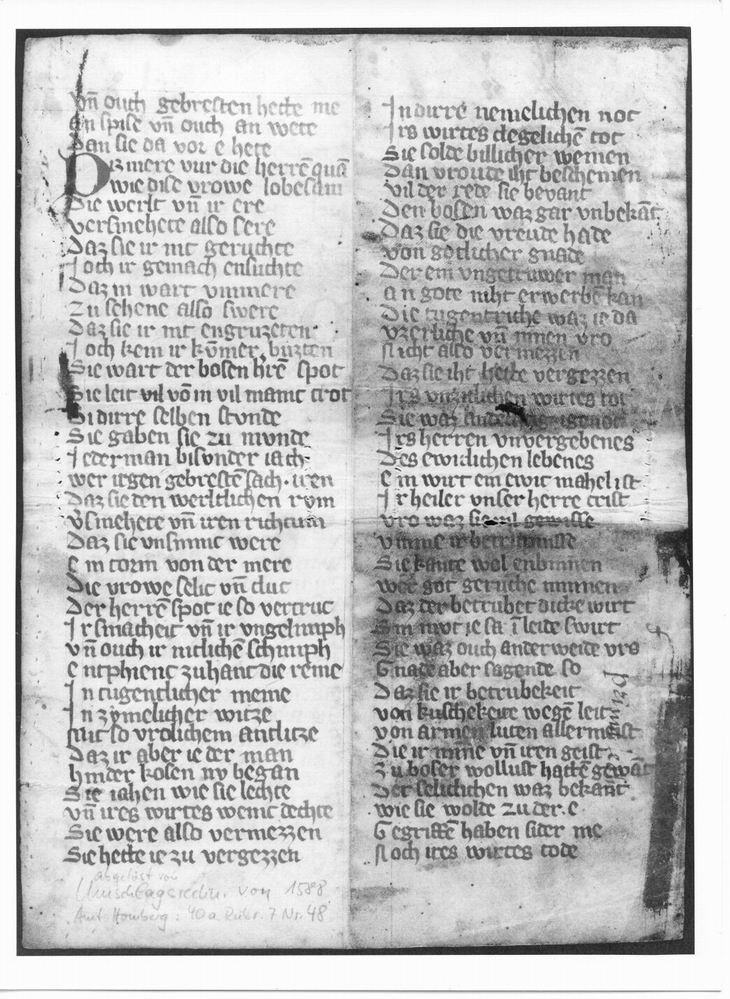 vn̄ ouch gebresten hette me
an spise vn̄ ouch an wete
Dan sie da vor e hete
Diz mere vur die herrē quā
wie dise vrowe lobesam
Die werlt vn̄ ir ere
versmehete also sere
Daz sie ir nit geruchte
Joch ir gemach ensuchte
Daz in wart vnmere
Zu sehene also swere
Daz sie ir nit engruzeten
Joch kem ir kūmer buzten
Sie wart der bosen hr̄e spot
Sie leit vil vō in vil manic trot
Bi dirre selben stunde
Sie gaben sie zu munde
Jederman bisunder iach
wer irgen gebrestē sach iren
Daz sie den werltlichen rvm
v̄smehete vn̄ iren richtum
Daz sie vnsinnic were
Ein torin von der mere
Die vrowe selic vn̄ clut
Der herrē spot ie so vertruc
Jr smacheit vn̄ ir vngelimph
vn̄ ouch ir nitlichē schimph
Entphienc zuhant die reine
Jn tugentlicher meine
Jn zymelicher witze
mit so vrolichem antlitze
Daz ir aber ieder man
hinder kosen ny began
Sie iahen wie sie lechte
vn̄ ires wirtes wenic dechte
Sie were also vermezzen
Sie hette ie zu vergezzen
abgelöst von
Umschlagrechn. von 1588
Amt Homberg: 40a Rubr. 7 Nr. 48
Jn dirre nemelichen not
Jrs wirtes clegelichē tot
Sie solde billicher weinen
Dan vroude iht bescheinen
vil der rede sie bevant
Den bosen waz gar vnbekāt
Daz sie die vreude hade
von gotlicher gnade
Der ein vngetruwer man
an gote niht erwerbē kan
Die tugentriche waz ie da
vzerliche vn̄ innen vro
Nicht also vermezzen
Daz sie iht hette vergezzen
Jrs wirtes tot
Sie waz
Jrs herren vnvergebenes
Des ewiclichen lebenes
Ein wirt ein ewic mahel ist
Jr heiler vnser herre crist
vro waz sie vil gewisse
vmme ir betrupnisse
Sie kante wol enbinnen
wes got geruche minnen
Daz der betrubet dicke wirt
Sin mvt ie sa ī leide swirt
Sie waz ouch anderweide vro
Gnade aber sagende so
Daz sie ir betrubekeit
von kuschekeite wegē leit
von armen luten allermeist
Die ir minne vn̄ iren geist
Zu boser wollust hattē gewāt
Der selichen waz bekant
wie sie wolde zu der e
Gegriffē haben sider me
Noch ires wirtes tode